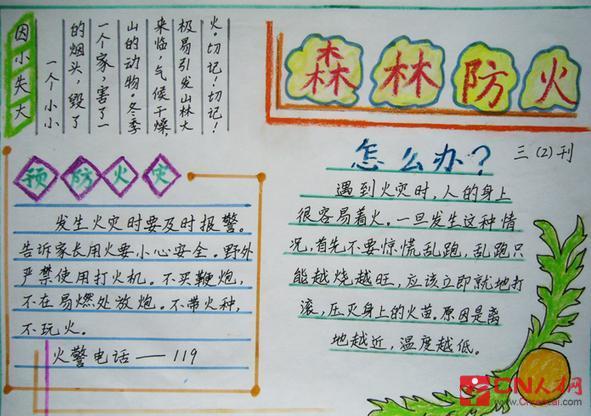 因小失大
一个小小
的烟头，毁了
一个家，害了一
山的动物。冬季
来临，气候干燥
极易引发山林大
火。切记！切记！
森林防火
三(2)刊
预防火灾
发生火灾时要及时报警。
告诉家长用火要小心安全。野外
严禁使用打火机。不买鞭炮，
不在易燃处放炮。不带火种，
不玩火。
火警电话——119
怎么办？
遇到火灾时，人的身上
很容易着火。一旦发生这种情
况，首先不要惊慌乱跑，乱跑只
能越烧越旺，应该立即就地打
滚，压灭身上的火苗。原因是离
地越近，温度越低。
CN人才网